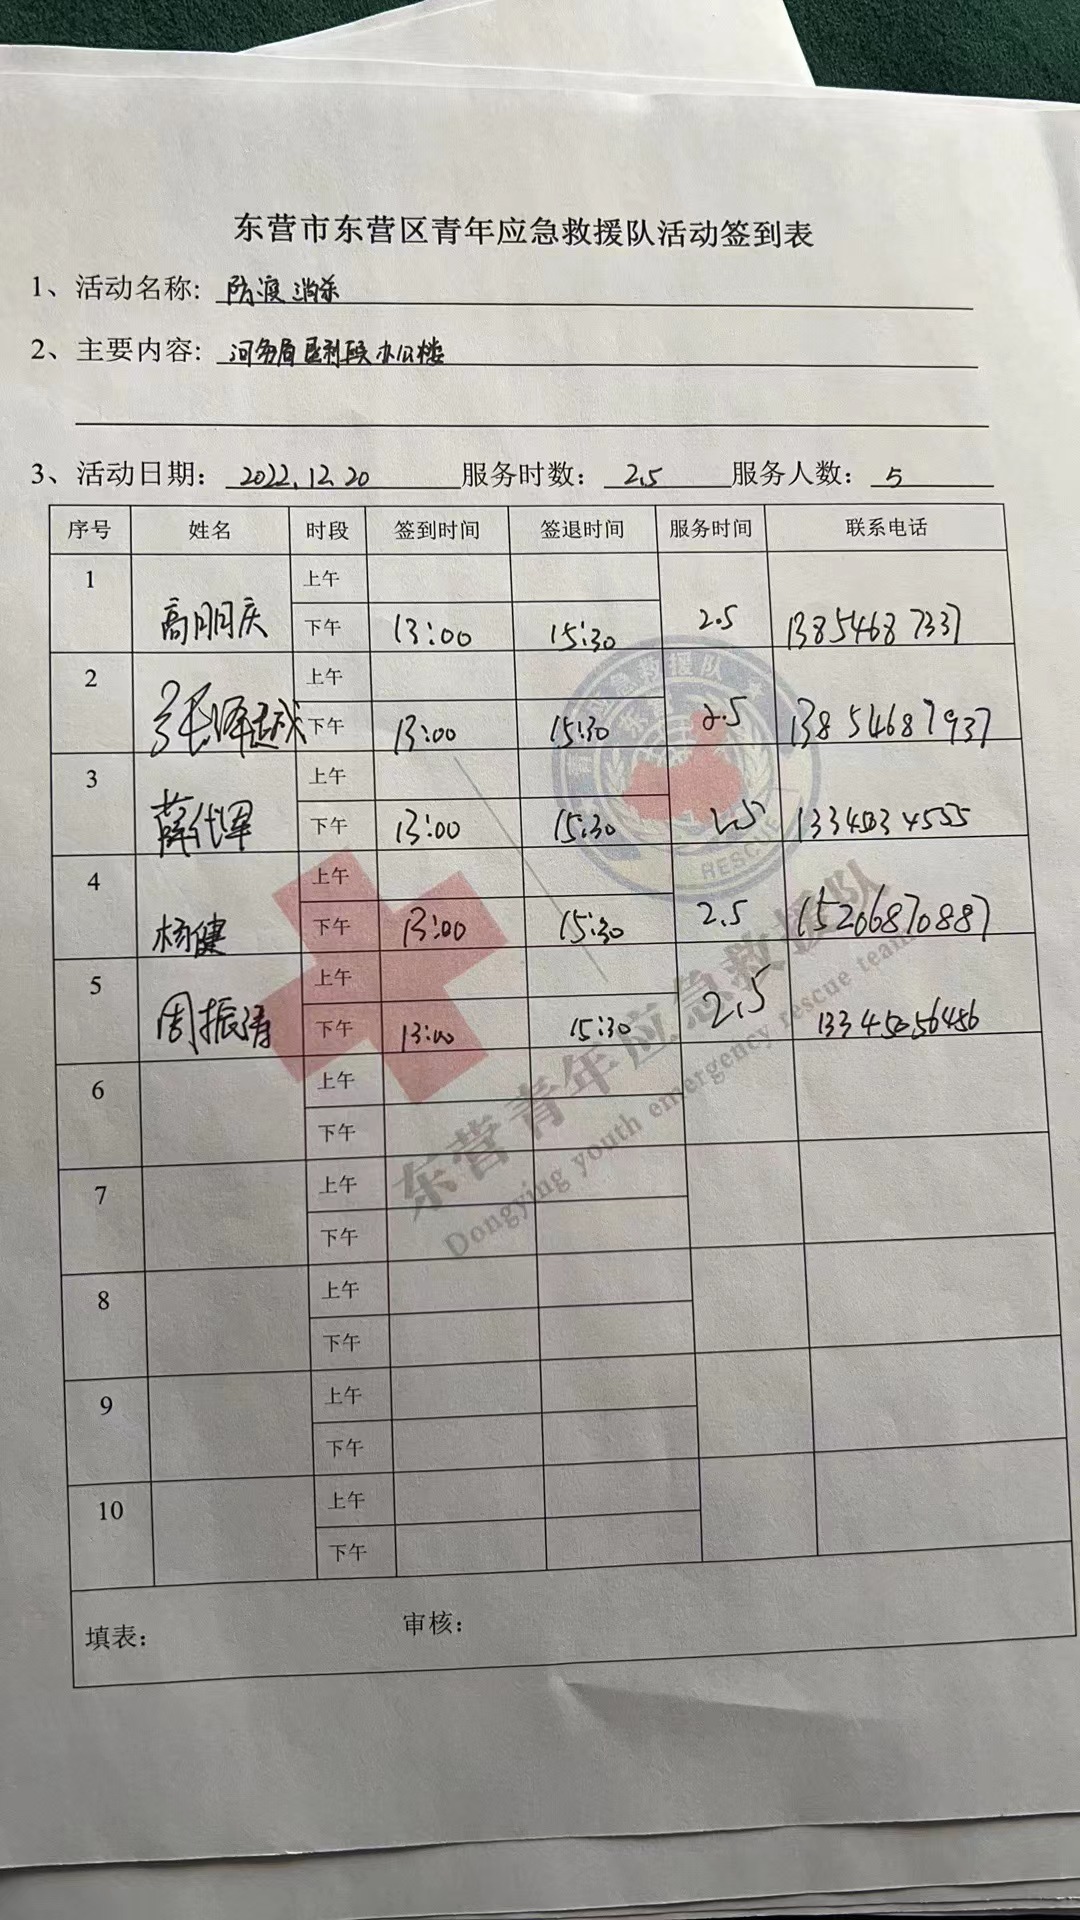 东营市东营区青年应急救援队活动签到表
1、活动名称: 防疫消杀
2、主要内容: 河务局垦利段办公楼
3、活动日期: 2022.12.20 服务时数: 2.5 服务人数: 5
序号 姓名 时段 签到时间 签退时间 服务时间 联系电话
1 高朋庆 上午
下午 13:00 15:30 2.5 13854687337
2 张泽越 上午
下午 13:00 15:30 2.5 13854687937
3 薛代军 上午
下午 13:00 15:30 2.5 13345034555
4 杨健 上午
下午 13:00 15:30 2.5 15206870887
5 周振涛 上午
下午 13:00 15:30 2.5 13345056456
6 上午
下午
7 上午
下午
8 上午
下午
9 上午
下午
10 上午
下午
填表: 审核:
东营青年应急救援队
Dongying youth emergency rescue team
RESCUE